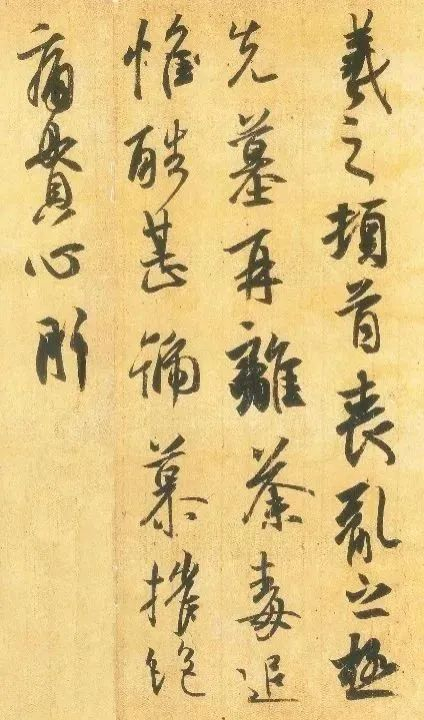 羲之頓首喪亂之極
先墓再離荼毒追
惟酷甚號慕摧絕
痛貫心肝